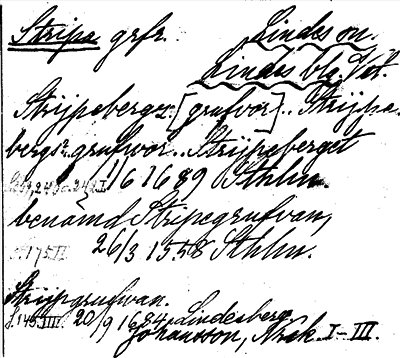 Stripa grfr. Lindes sn.
Lindes blg. Vöt.
Strijpebergz. [grufvor].. Strijpa-
bergsz. grufwor.. Strijpeberget
1/6 1689 Sthlm.
benämd Stripegrufvan,
26/3 1558 Sthlm.
Strijpgrufwan.
20/9 1684 Lindesberg.
Johansson, Norsk. I-III.